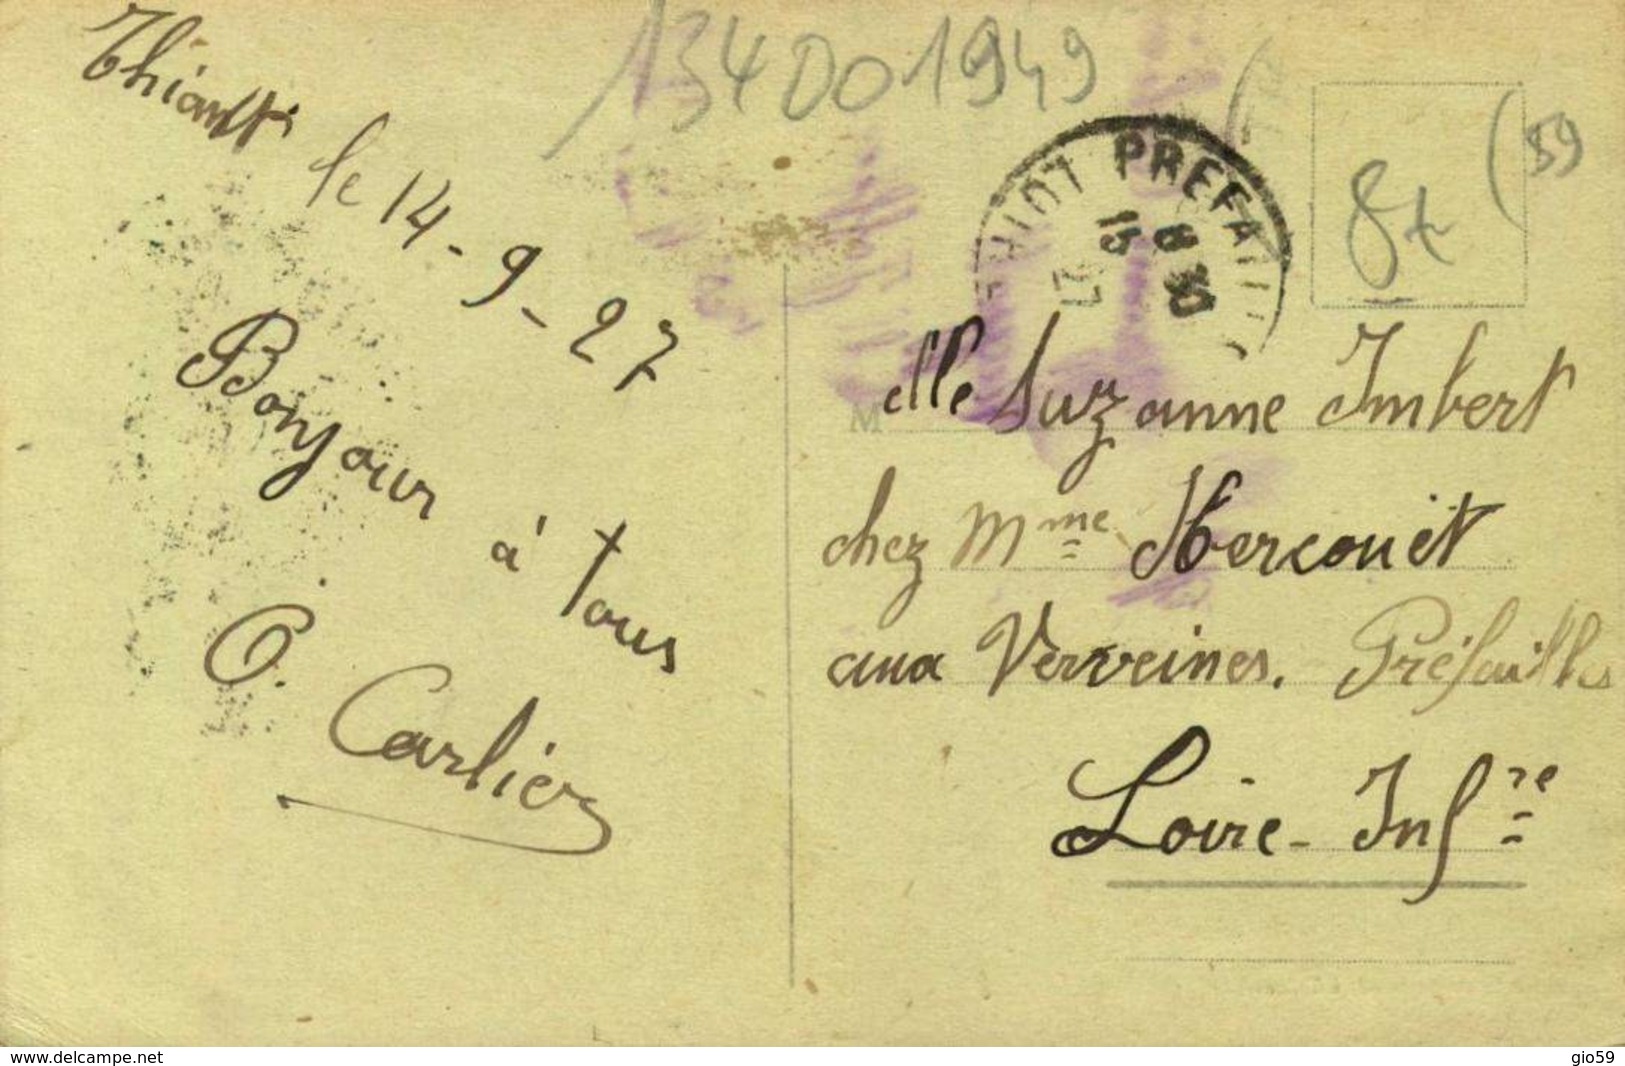 134001949
(59
8t
Thiant
le 14-9-27
Bonjour
à tous
O. Carlier
PREFAIL
8 30
15
27
M elle Suzanne Imbert
chez Mme Mercouët
aux Verveines. Préfailles
Loire-Infre
www.delcampe.net
gio59